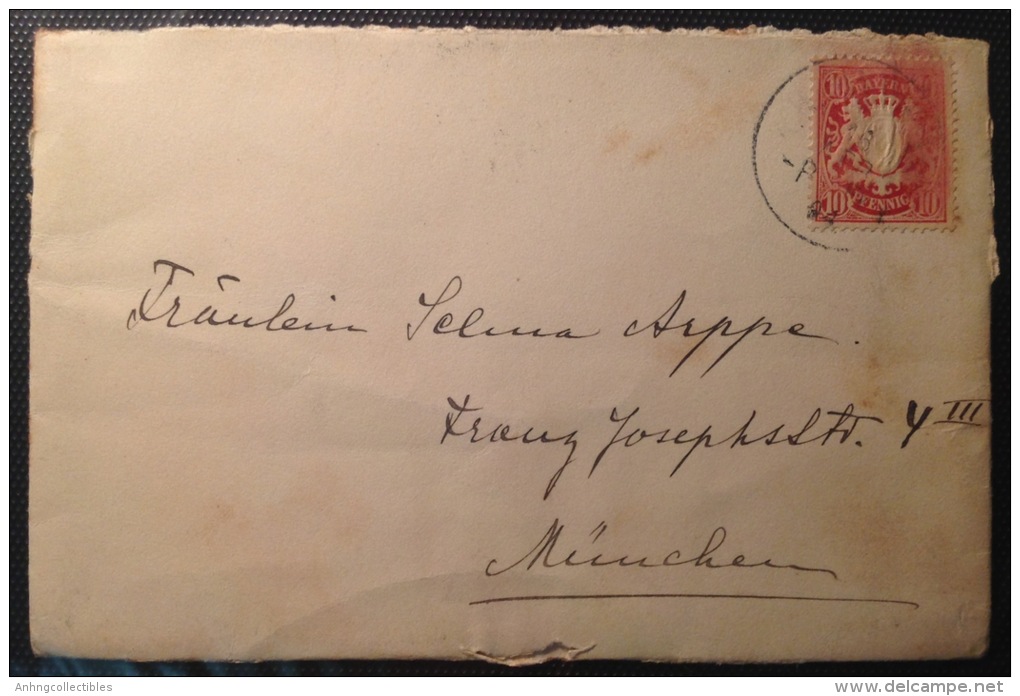 10 BAYERN
10 PFENNIG 10
Fräulein Selma Arppe.
Franz Josephsstr. 4 III
München
Anhngcollectibles
delcampe.net